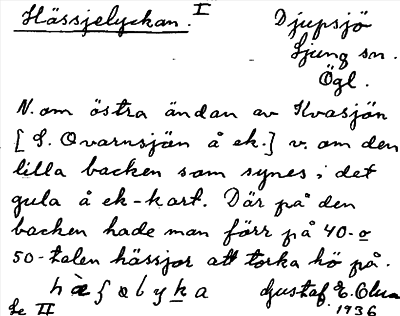 Hässjelyckan. I
Djupsjö
Ljung sn.
Ögl.
N. om östra ändan av Kvasjön
[ S. Qvarnsjön å ek.] v. om den
lilla backen som synes i det
gula å ek-kart. Där på den
backen hade man förr på 40- o
50-talen hässjor att torka hö på.
Gustaf E.
Se II
1936